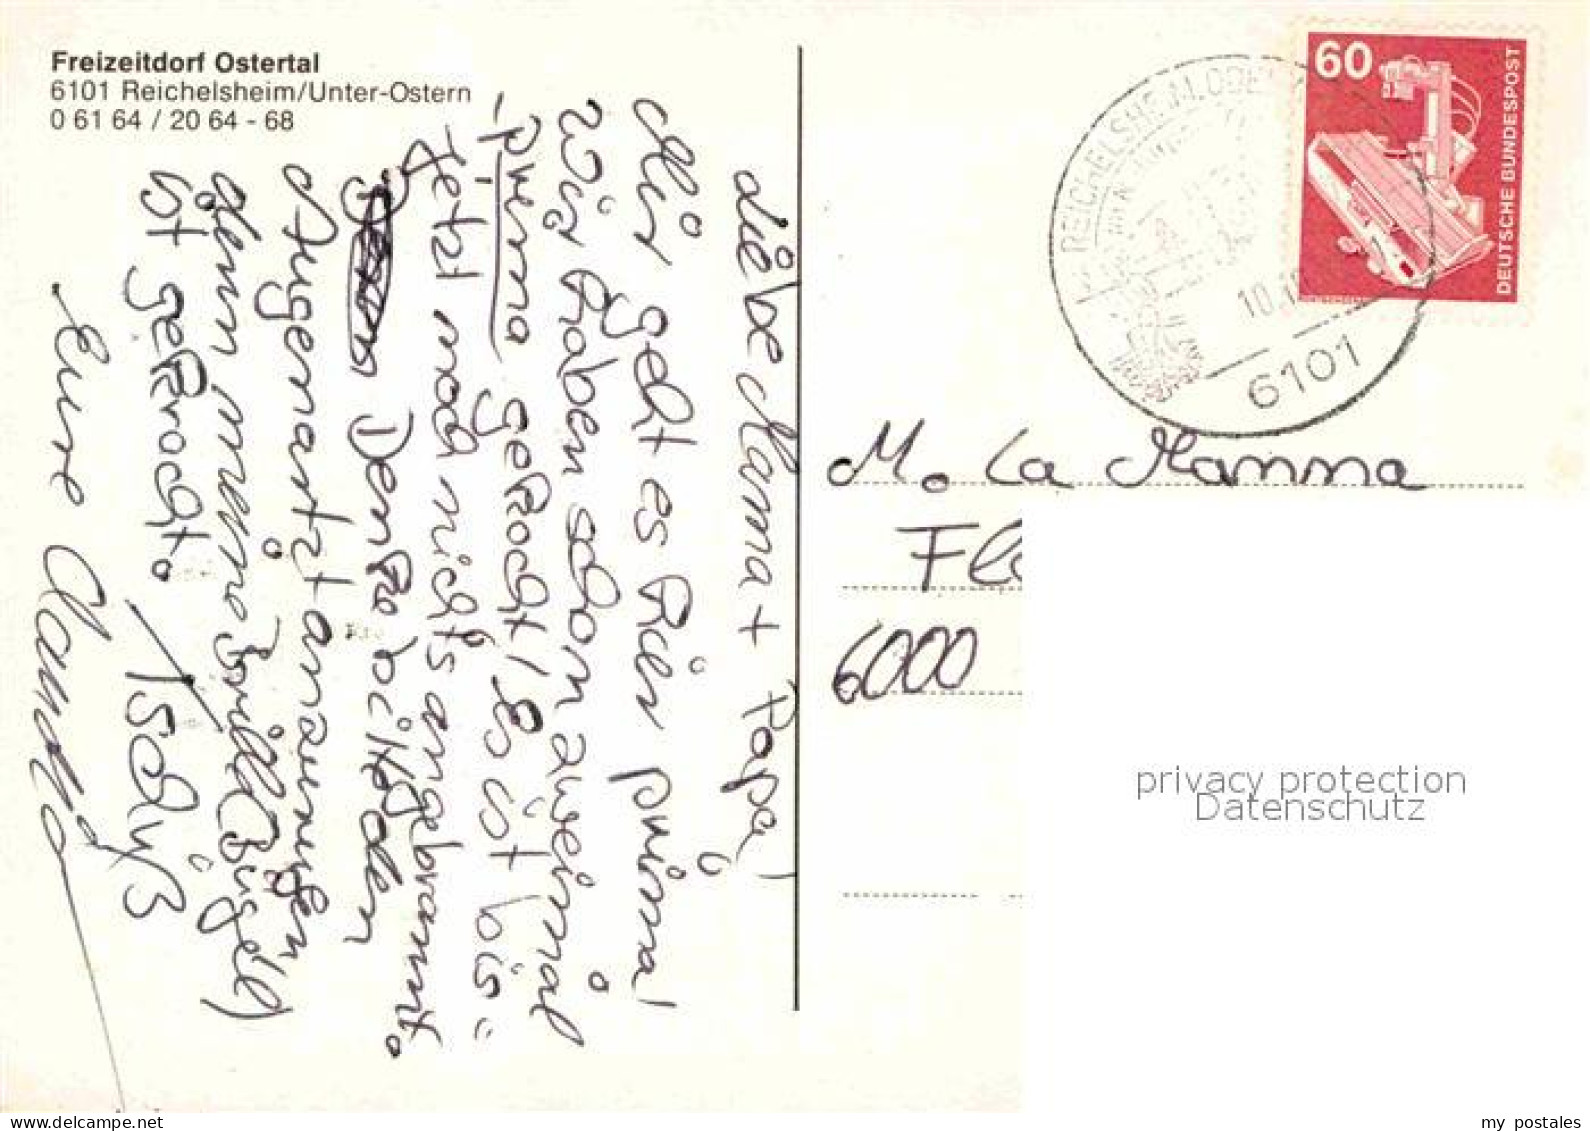 Freizeitdorf Ostertal
6101 Reichelsheim/Unter-Ostern
0 61 64 / 20 64 - 68
Liebe Mama + Papa!
Mir geht es hier prima!
Wir haben schon zweimal
prima gekocht, es ist bis=
jetzt noch nichts angebrannt.
Denke bitte den
Augenarzt anzurufen
denn meine Brille (Bügel)
ist gekrocht.
Tschüß
Eure Claudia
60
DEUTSCHE BUNDESPOST
REICHELSHEIM, ODE
10.1
6101
M. La Manna
6000
privacy protection
Datenschutz
my postales